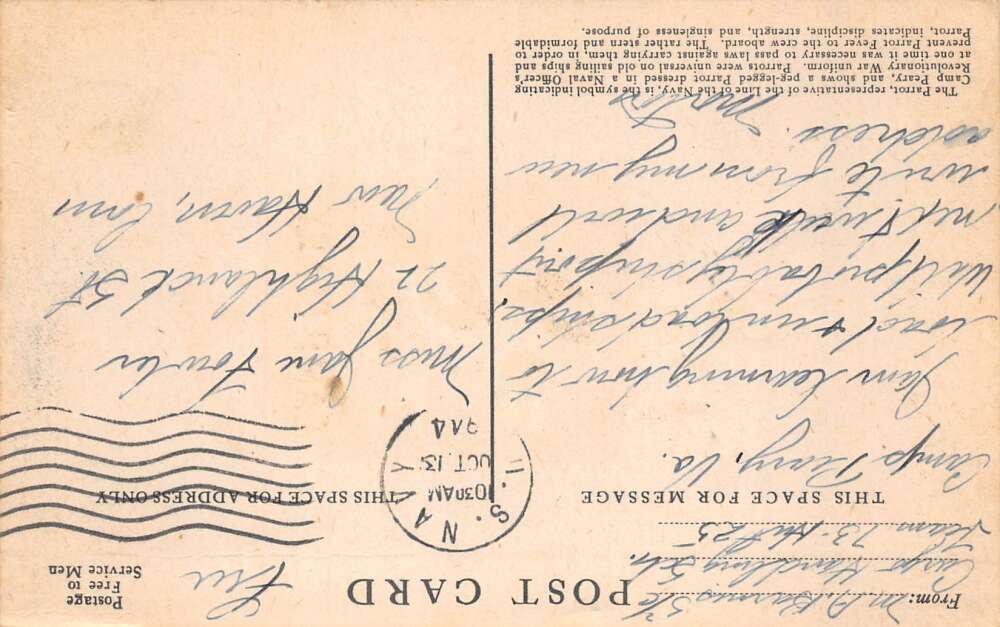 POST CARD
Postage
Free to
Service Men
Free
From: M. A. Barnes S 1/c
Cargo Handling Sch.
Team 73 Hut 25
THIS SPACE FOR MESSAGE
THIS SPACE FOR ADDRESS ONLY
U.S. NA
1030AM
OCT 13
Camp Peary, Va.
I am learning how to
load & unload ships,
Will probably ship out
next week and will
write from my new
address.
Miss Jane Fowler
22 Highland St
New Haven, Conn
The Parrot, representative of the Line of the Navy, is the symbol indicating
Camp Peary, and shows a peg-legged Parrot dressed in a Naval Officer's
Revolutionary War uniform. Parrots were universal on old sailing ships and
at one time it was necessary to pass laws against carrying them, in order to
prevent Parrot Fever to the crew aboard. The rather stern and formidable
Parrot, indicates discipline, strength, and singleness of purpose.